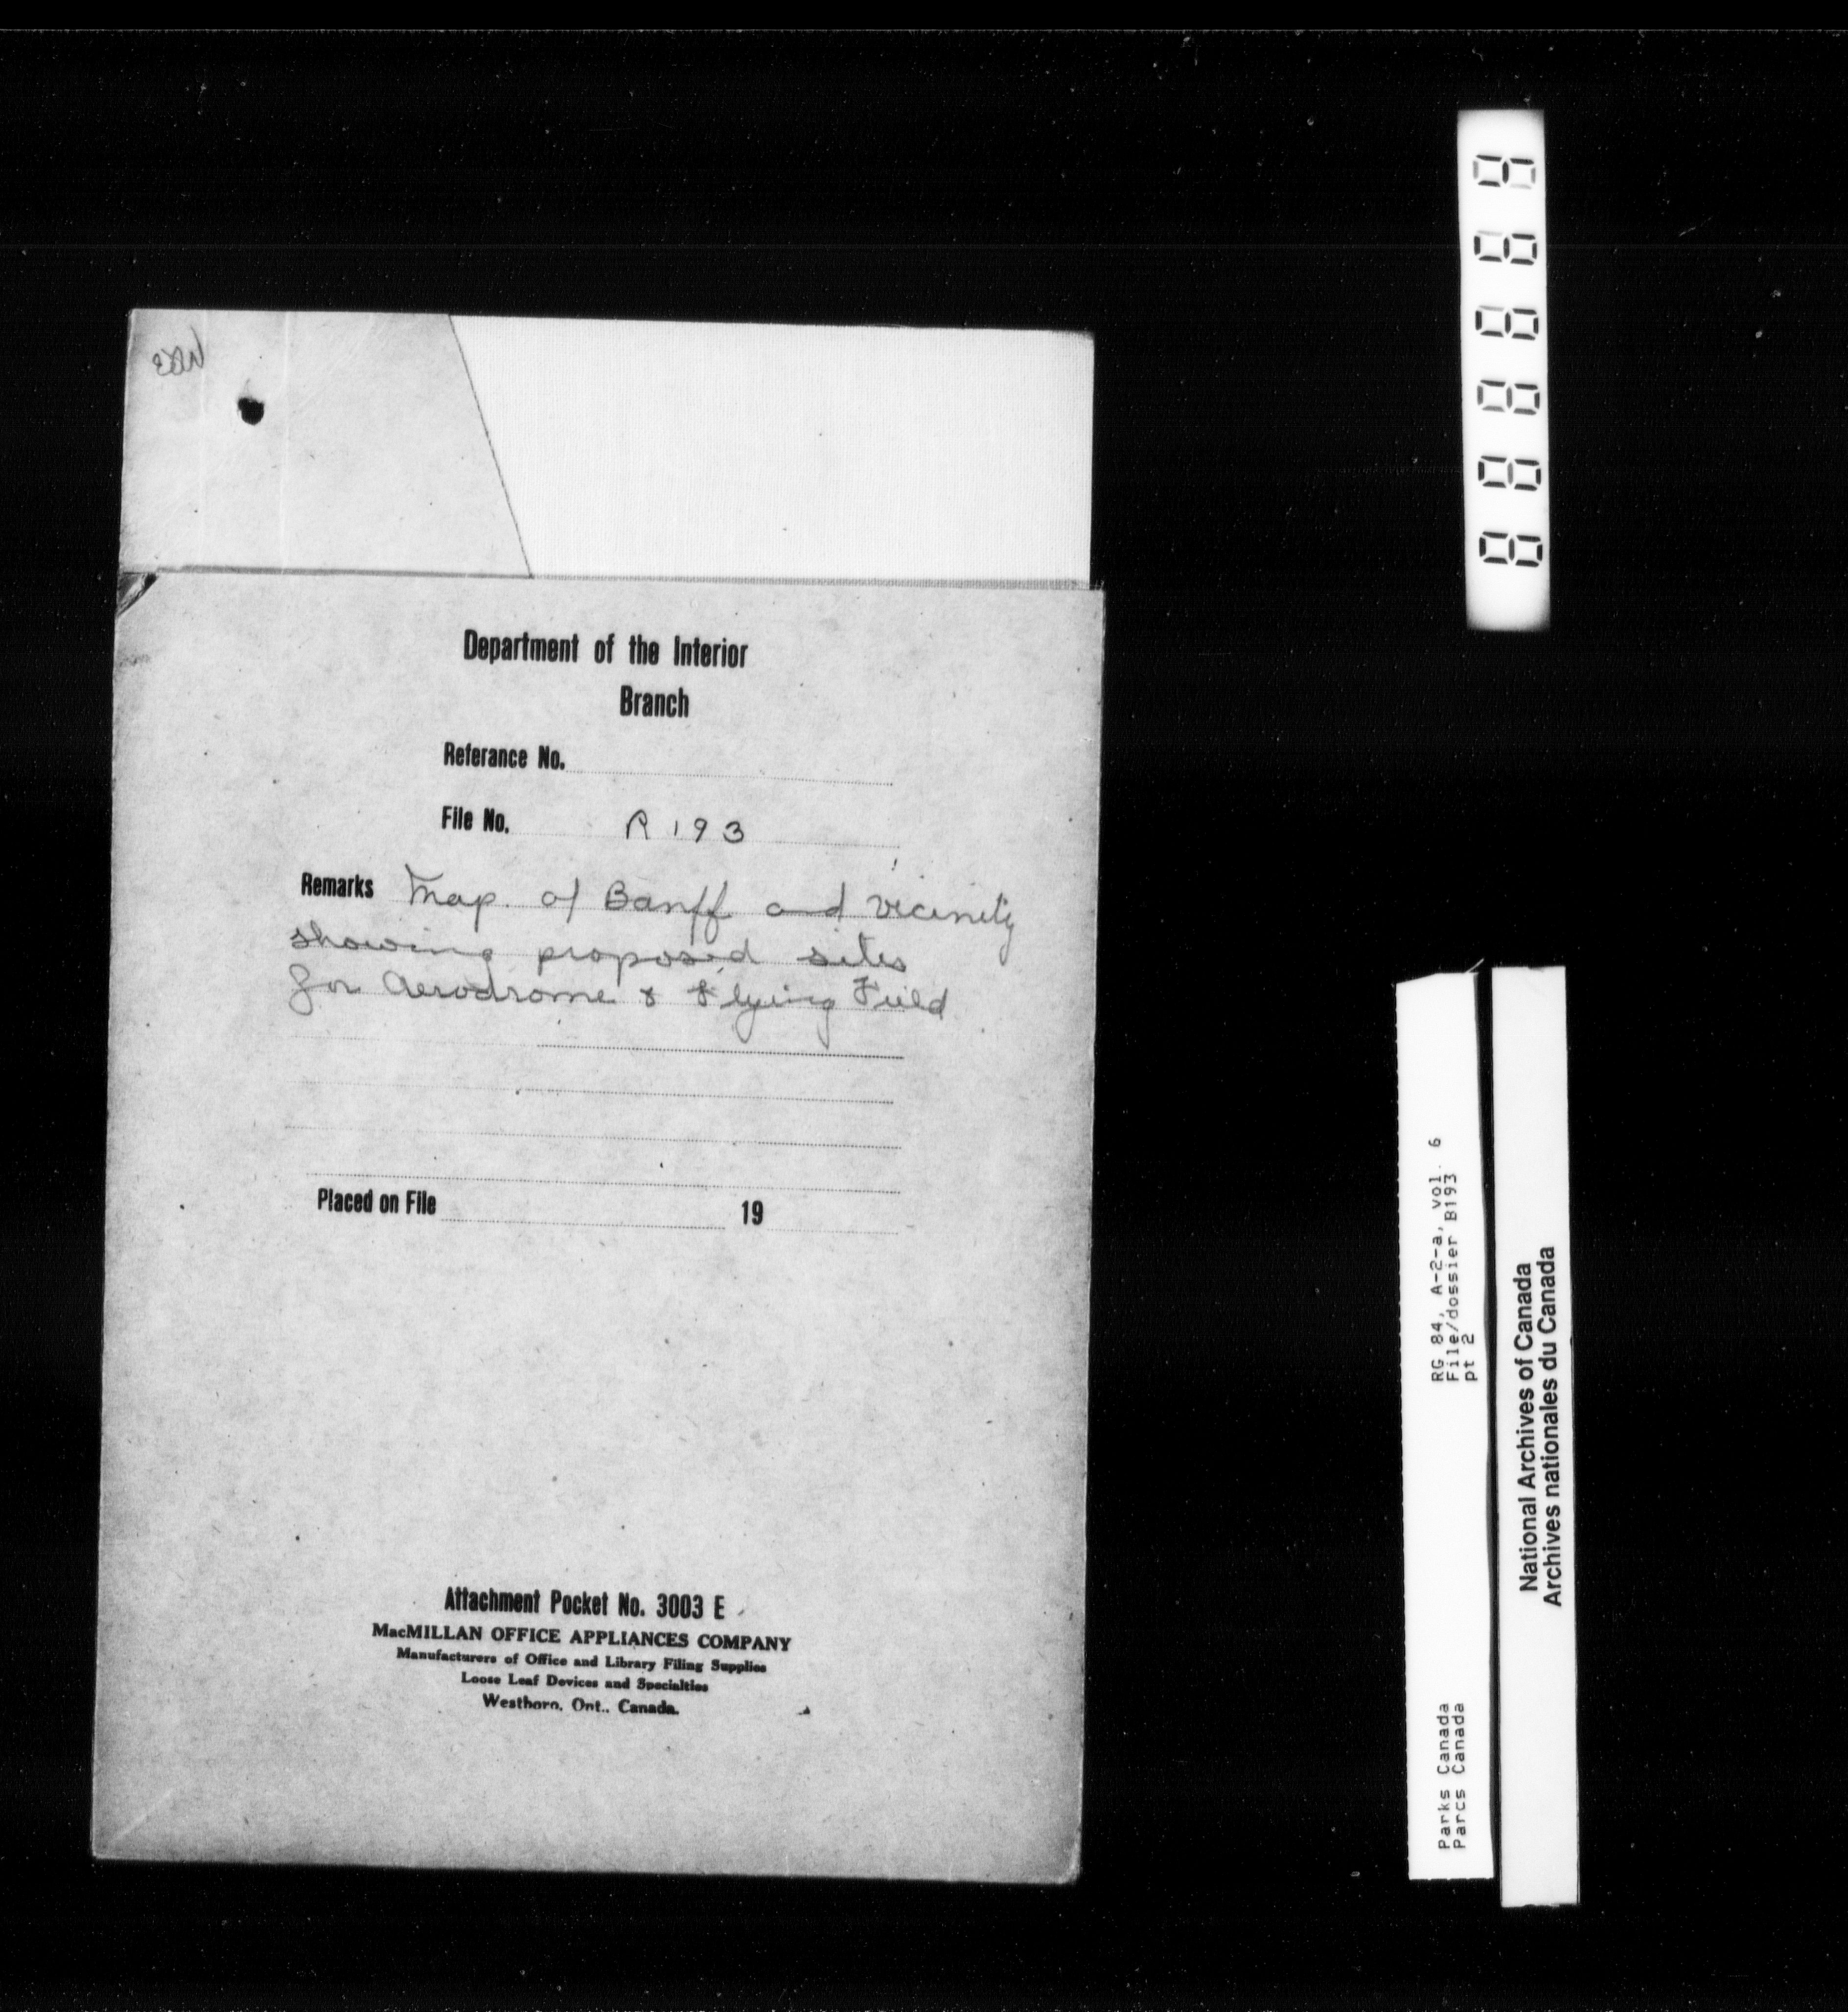 Department of the Interior
Branch
Referance No.
File No. R 193
Remarks Map. of Banff and vicinity
showing proposed sites
for Aerodrome & Flying Field
Placed on File 19
Attachment Pocket No. 3003 E
MacMILLAN OFFICE APPLIANCES COMPANY
Manufacturers of Office and Library Filing Supplies
Loose Leaf Devices and Specialties
Westboro, Ont., Canada.
RG 84, A-2-a, vol. 6
File/dossier B193
pt 2
Parks Canada
Parcs Canada
National Archives of Canada
Archives nationales du Canada